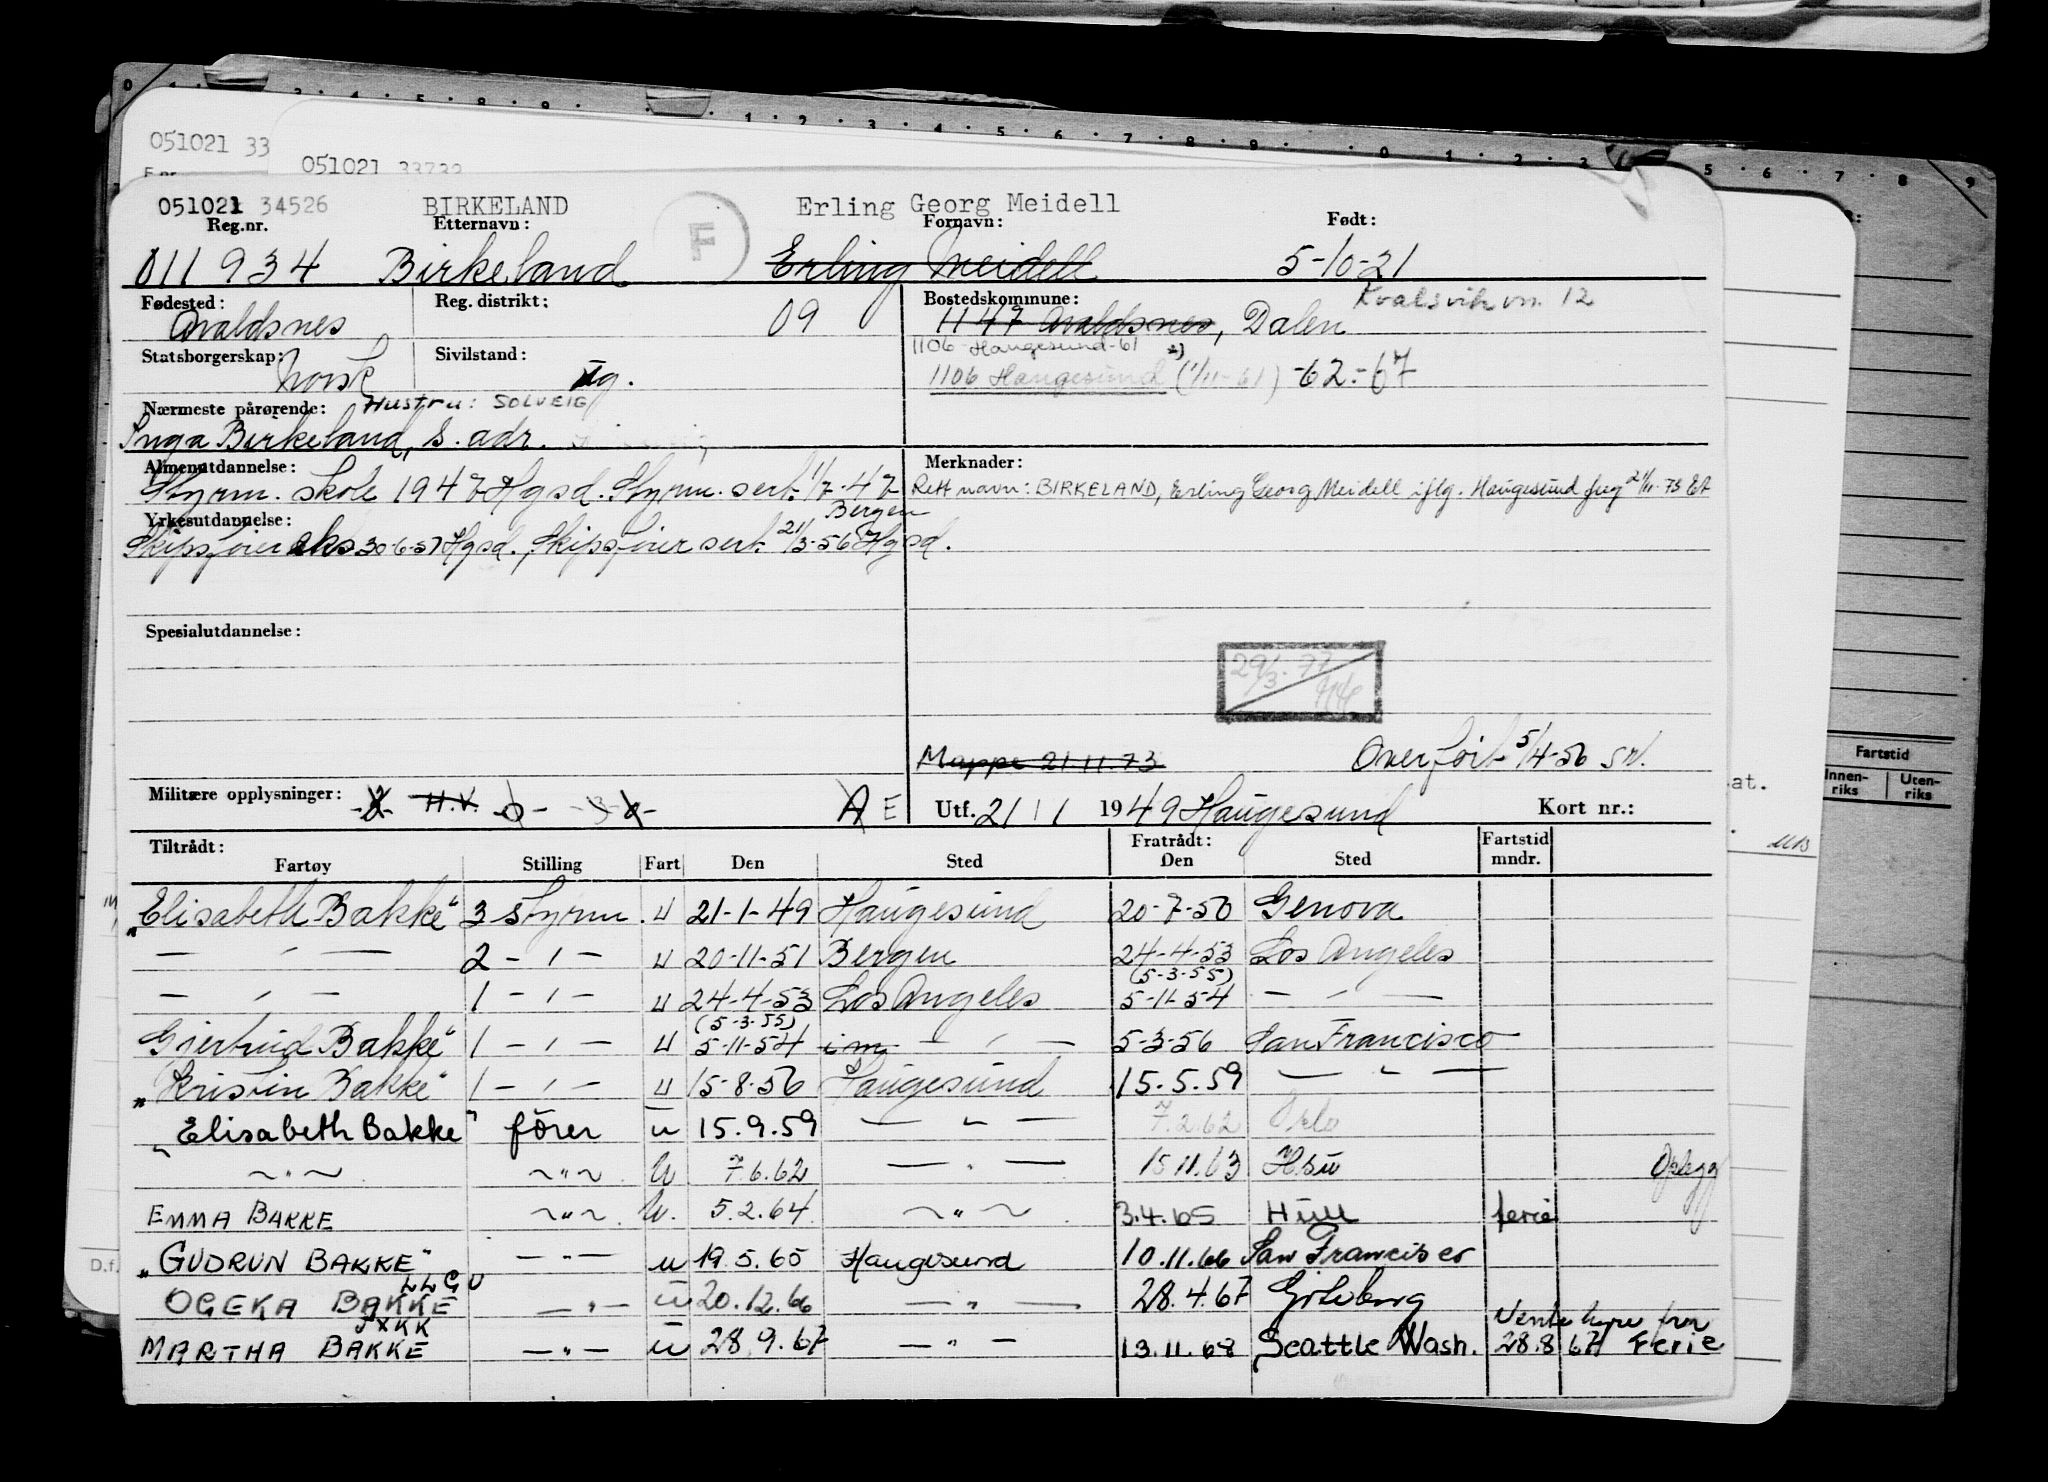 051021 33
051021 33732
051021 34526 BIRKELAND F Erling Georg Meidell
Reg.nr. Etternavn: Fornavn: Født:
011934 Birkeland Erling Meidell 5-10-21
Fødested: Reg. distrikt: Bostedskommune: Kvalsvikvn. 12
Avaldsnes 09 1147 Avaldsnes, Dalen
1106 Haugesund-61
Statsborgerskap: Sivilstand:
Norsk ug. 1106 Haugesund (1/11-61) -62.-67
Nærmeste pårørende: Hustru: SOLVEIG
Inga Birkeland, s. adr.
Almenutdannelse: Merknader:
Styrm. skole 1947 Hgsd. Styrm. sert. 1/7-47 Rett navn: BIRKELAND, Erling Georg Meidell iflg. Haugesund freg 21/11-73 ET
Bergen
Yrkesutdannelse:
Skipsfører eks 30-6-51 Hgsd. Skipsfører sert. 21/3-56 Hgsd.
Spesialutdannelse:
29/3-77
Mappe 21.11.73 Overført 5/4-56 SN.
Militære opplysninger: H.V. A E Utf. 21/1 1949 Haugesund Kort nr.:
Tiltrådt: Fratrådt: Fartstid
Fartøy Stilling Fart Den Sted Den Sted mndr.
"Elisabeth Bakke" 3 styrm. u 21-1-49 Haugesund 20-7-50 Genova
— " — 2 - " - u 20-11-51 Bergen 24-4-53 Los Angeles
(5-3-55)
— " — 1 - " - u 24-4-53 Los Angeles 5-11-54 — " —
(5-3-55)
Gjertrud Bakke" 1 - " - u 5-11-54 im — " — 5-3-56 San Francisco
"Kristin Bakke" 1 - " - u 15-8-56 Haugesund 15.5.59 — " —
"Elisabeth Bakke" fører u 15.9.59 — " — 7.2.62 Oslo
~ " ~ ~ " ~ U 7.6.62 — " — 15.11.63 H.su Opplegg
EMMA BAKKE ~ " ~ U. 5.2.64 ~ " ~ 3.4.65 Hull ferie
"GUDRUN BAKKE" — " — u 19.5.65 Haugesund 10.11.66 San Francisco
LLGU
OGEKA BAKKE — " — u 20.12.66 — " — 28.4.67 Göteborg
JXKK Ventehyre fra
MARTHA BAKKE — " — u 28.9.67 — " — 13.11.68 Seattle Wash. 28.8 67 Ferie
Fartstid
Innen-
riks Uten-
riks